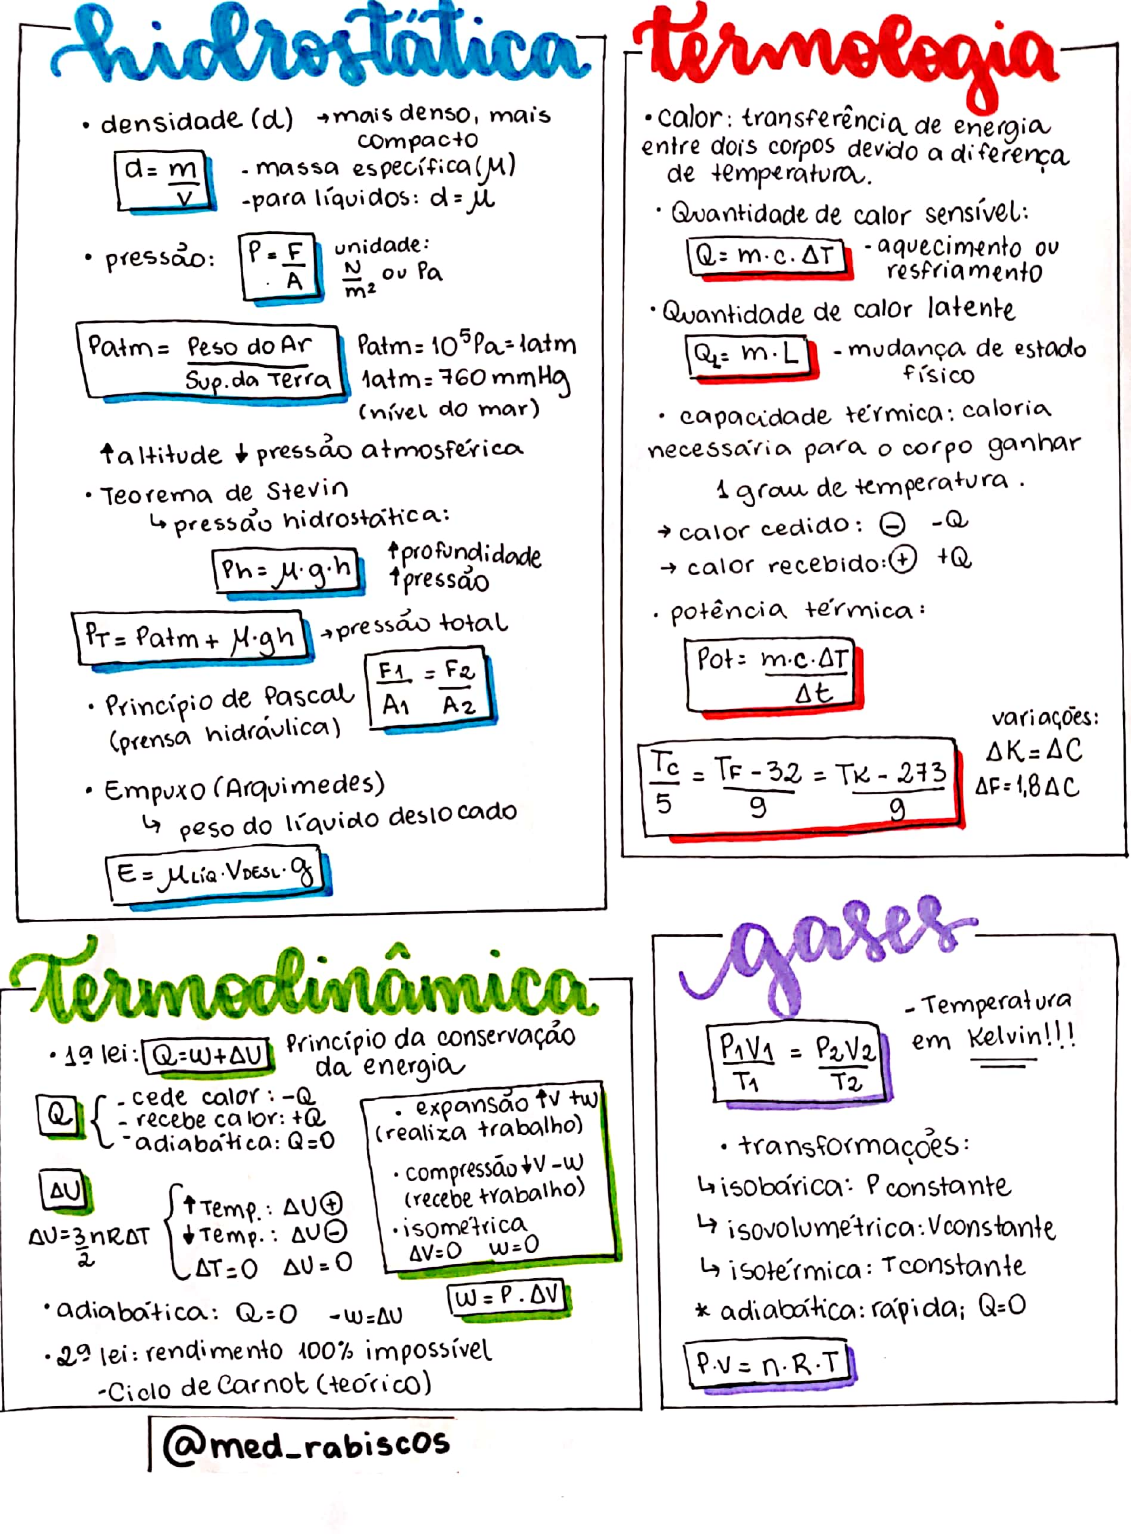 hidrostática
• densidade (d) → mais denso, mais
compacto
d = m/V
- massa específica (μ)
- para líquidos: d = μ
• pressão: P = F/A
unidade:
N/m² ou Pa
Patm = Peso do Ar/Sup. da Terra
Patm = 10⁵Pa = 1atm
1atm = 760 mmHg
(nível do mar)
↑altitude ↓ pressão atmosférica
• Teorema de Stevin
↳ pressão hidrostática:
Ph = μ·g·h
↑profundidade
↑pressão
PT = Patm + μ·gh → pressão total
• Princípio de Pascal
(prensa hidráulica)
F1/A1 = F2/A2
• Empuxo (Arquimedes)
↳ peso do líquido deslocado
E = μLíQ · VDESL · g
termologia
• calor: transferência de energia
entre dois corpos devido a diferença
de temperatura.
• Quantidade de calor sensível:
Q = m·c·ΔT
- aquecimento ou
resfriamento
• Quantidade de calor latente
QL = m·L
- mudança de estado
físico
• capacidade térmica: caloria
necessária para o corpo ganhar
1 grau de temperatura.
→ calor cedido: ⊖ -Q
→ calor recebido: ⊕ +Q
• potência térmica:
Pot = m·c·ΔT/Δt
variações:
ΔK = ΔC
ΔF = 1,8ΔC
Tc/5 = TF - 32/9 = TK - 273/9
termodinâmica
• 1ª lei: Q = W + ΔU Princípio da conservação
da energia
Q { - cede calor: -Q
- recebe calor: +Q
- adiabática: Q=0
ΔU
ΔU = 3/2 nRΔT
{ ↑ Temp.: ΔU ⊕
↓ Temp.: ΔU ⊖
ΔT=0 ΔU=0
• expansão ↑V +W
(realiza trabalho)
• compressão ↓V -W
(recebe trabalho)
• isométrica
ΔV=0 W=0
W = P · ΔV
• adiabática: Q=0 -W=ΔU
• 2ª lei: rendimento 100% impossível
- Ciclo de Carnot (teórico)
gases
P1V1/T1 = P2V2/T2
- Temperatura
em Kelvin!!!
• transformações:
↳ isobárica: P constante
↳ isovolumétrica: V constante
↳ isotérmica: T constante
* adiabática: rápida; Q=0
P·V = n·R·T
@med_rabiscos